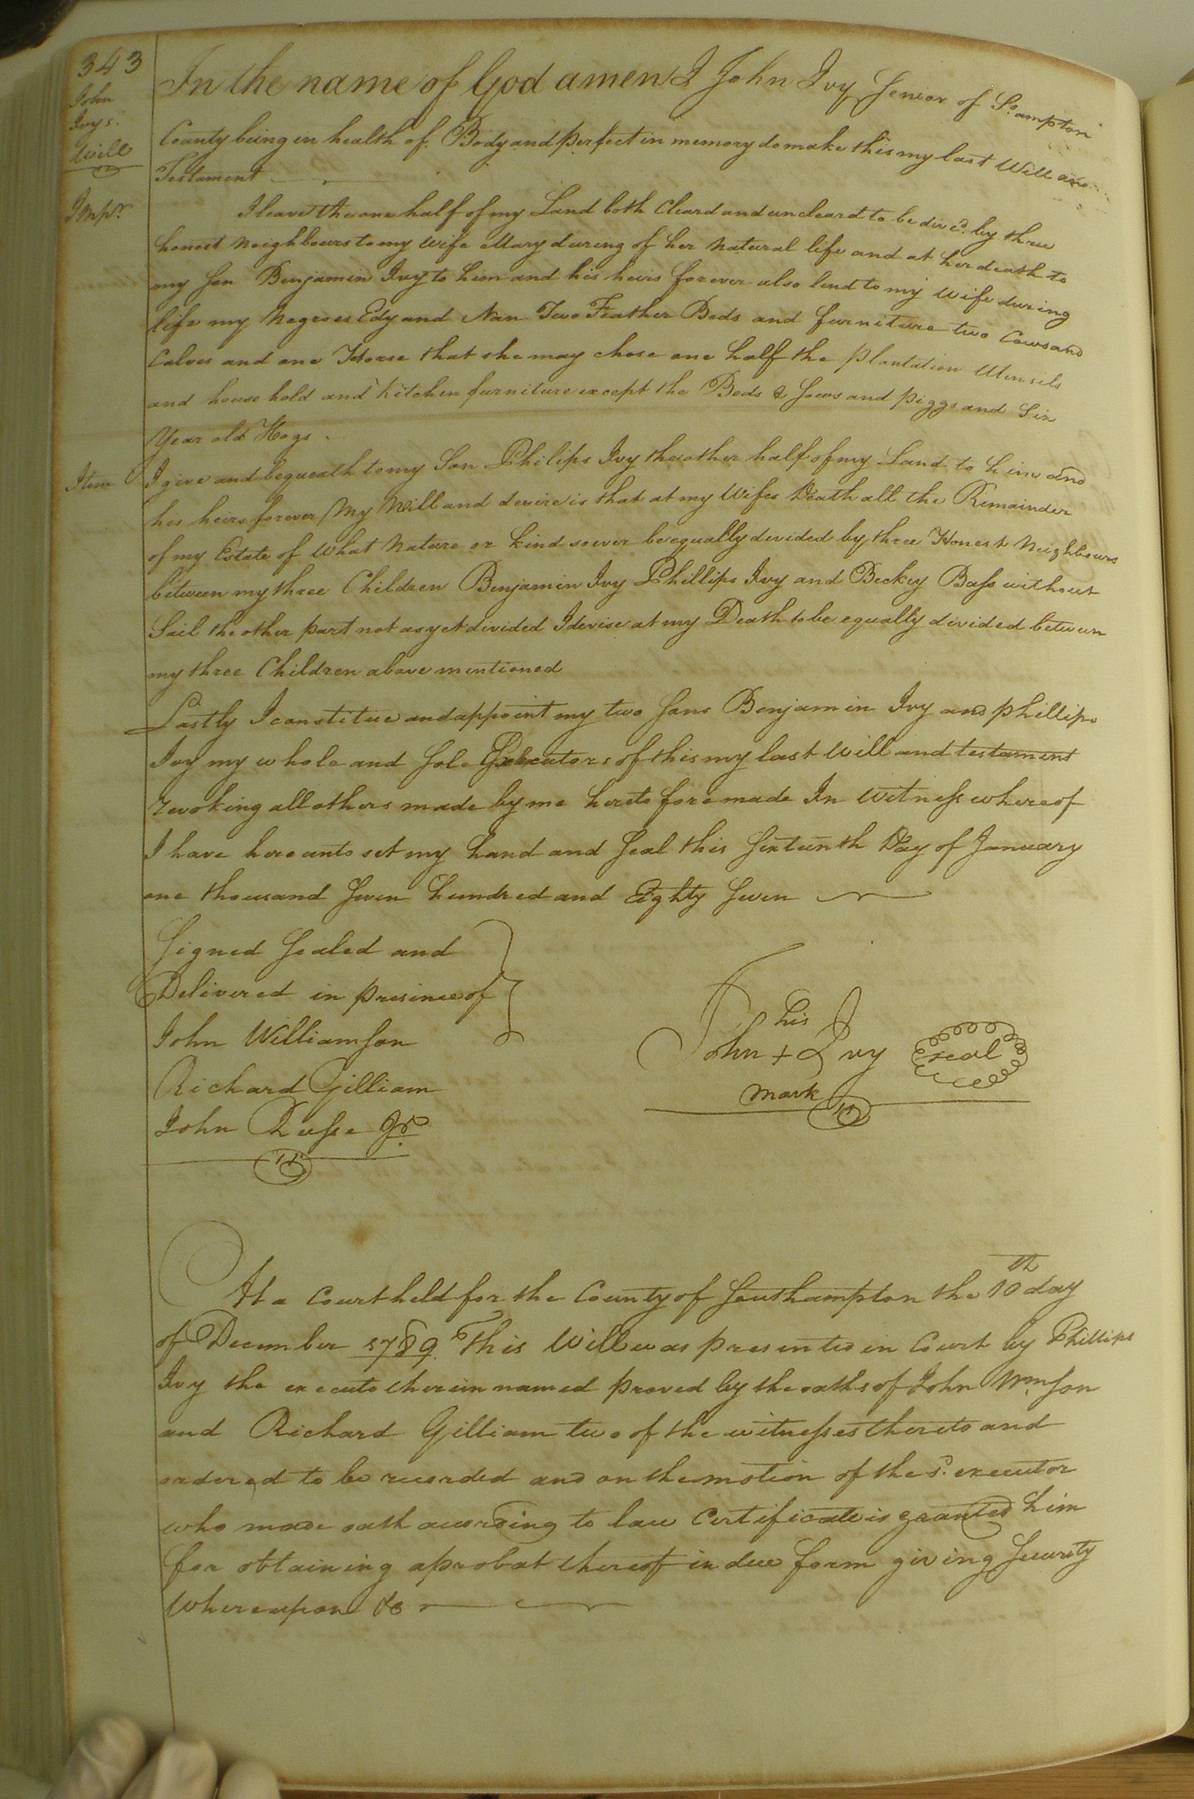 343
John
Ivys.
Will
In the name of God amen I John Ivy Senior of So.ampton
County being in health of Body and perfect in memory do make this my last Will and
Testament
Impr.
I leave the one half of my Land both Cleard and uncleard to be divd. by three
honest Neighbours to my Wife Mary during of her Natural life and at her death to
my Son Benjamin Ivy to him and his heirs forever also lend to my Wife during
life my Negroes Edy and Nan Two Feather Beds and furniture two Cows and
Calves and one Horse that she may chose one half the plantation Utensils
and house hold and kitchen furniture except the Beds 2 Sows and piggs and Six
Year old Hogs.
Item I give and bequeath to my Son Philips Ivy the other half of my Land to him and
his heirs forever My Will and desire is that at my Wifes Death all the Remainder
of my Estate of What Nature or kind soever be equally divided by three Honest Neighbours
between my three Children Benjamin Ivy Phillips Ivy and Beckey Bass without
Sail the other part not as yet divided I devise at my Death to be equally divided between
my three Children above mentioned
Lastly I constitue and appoint my two Sons Benjamin Ivy and phillips
Ivy my whole and Sole Executors of this my last Will and testament
revoking all others made by me hereto fore made In Witness whereof
I have hereunto set my hand and Seal this Sixteenth Day of January
one thousand Seven hundred and Eighty Seven
Signed Sealed and
Delivered in presince of
John Williamson
Richard Gilliam
John Jr.
his
John + Ivy seal
mark
At a Court held for the County of Southampton the 10th day
of December 1789. This Will was presented in Court by Phillips
Ivy the executo therein named proved by the oaths of John Wmson
and Richard Gilliam two of the witnesses thereto and
ordered to be recorded and on the motion of the sd. executor
who made oath according to law Certificate is granted him
for obtaining a probat thereof in due form giving Security
Whereupon &c